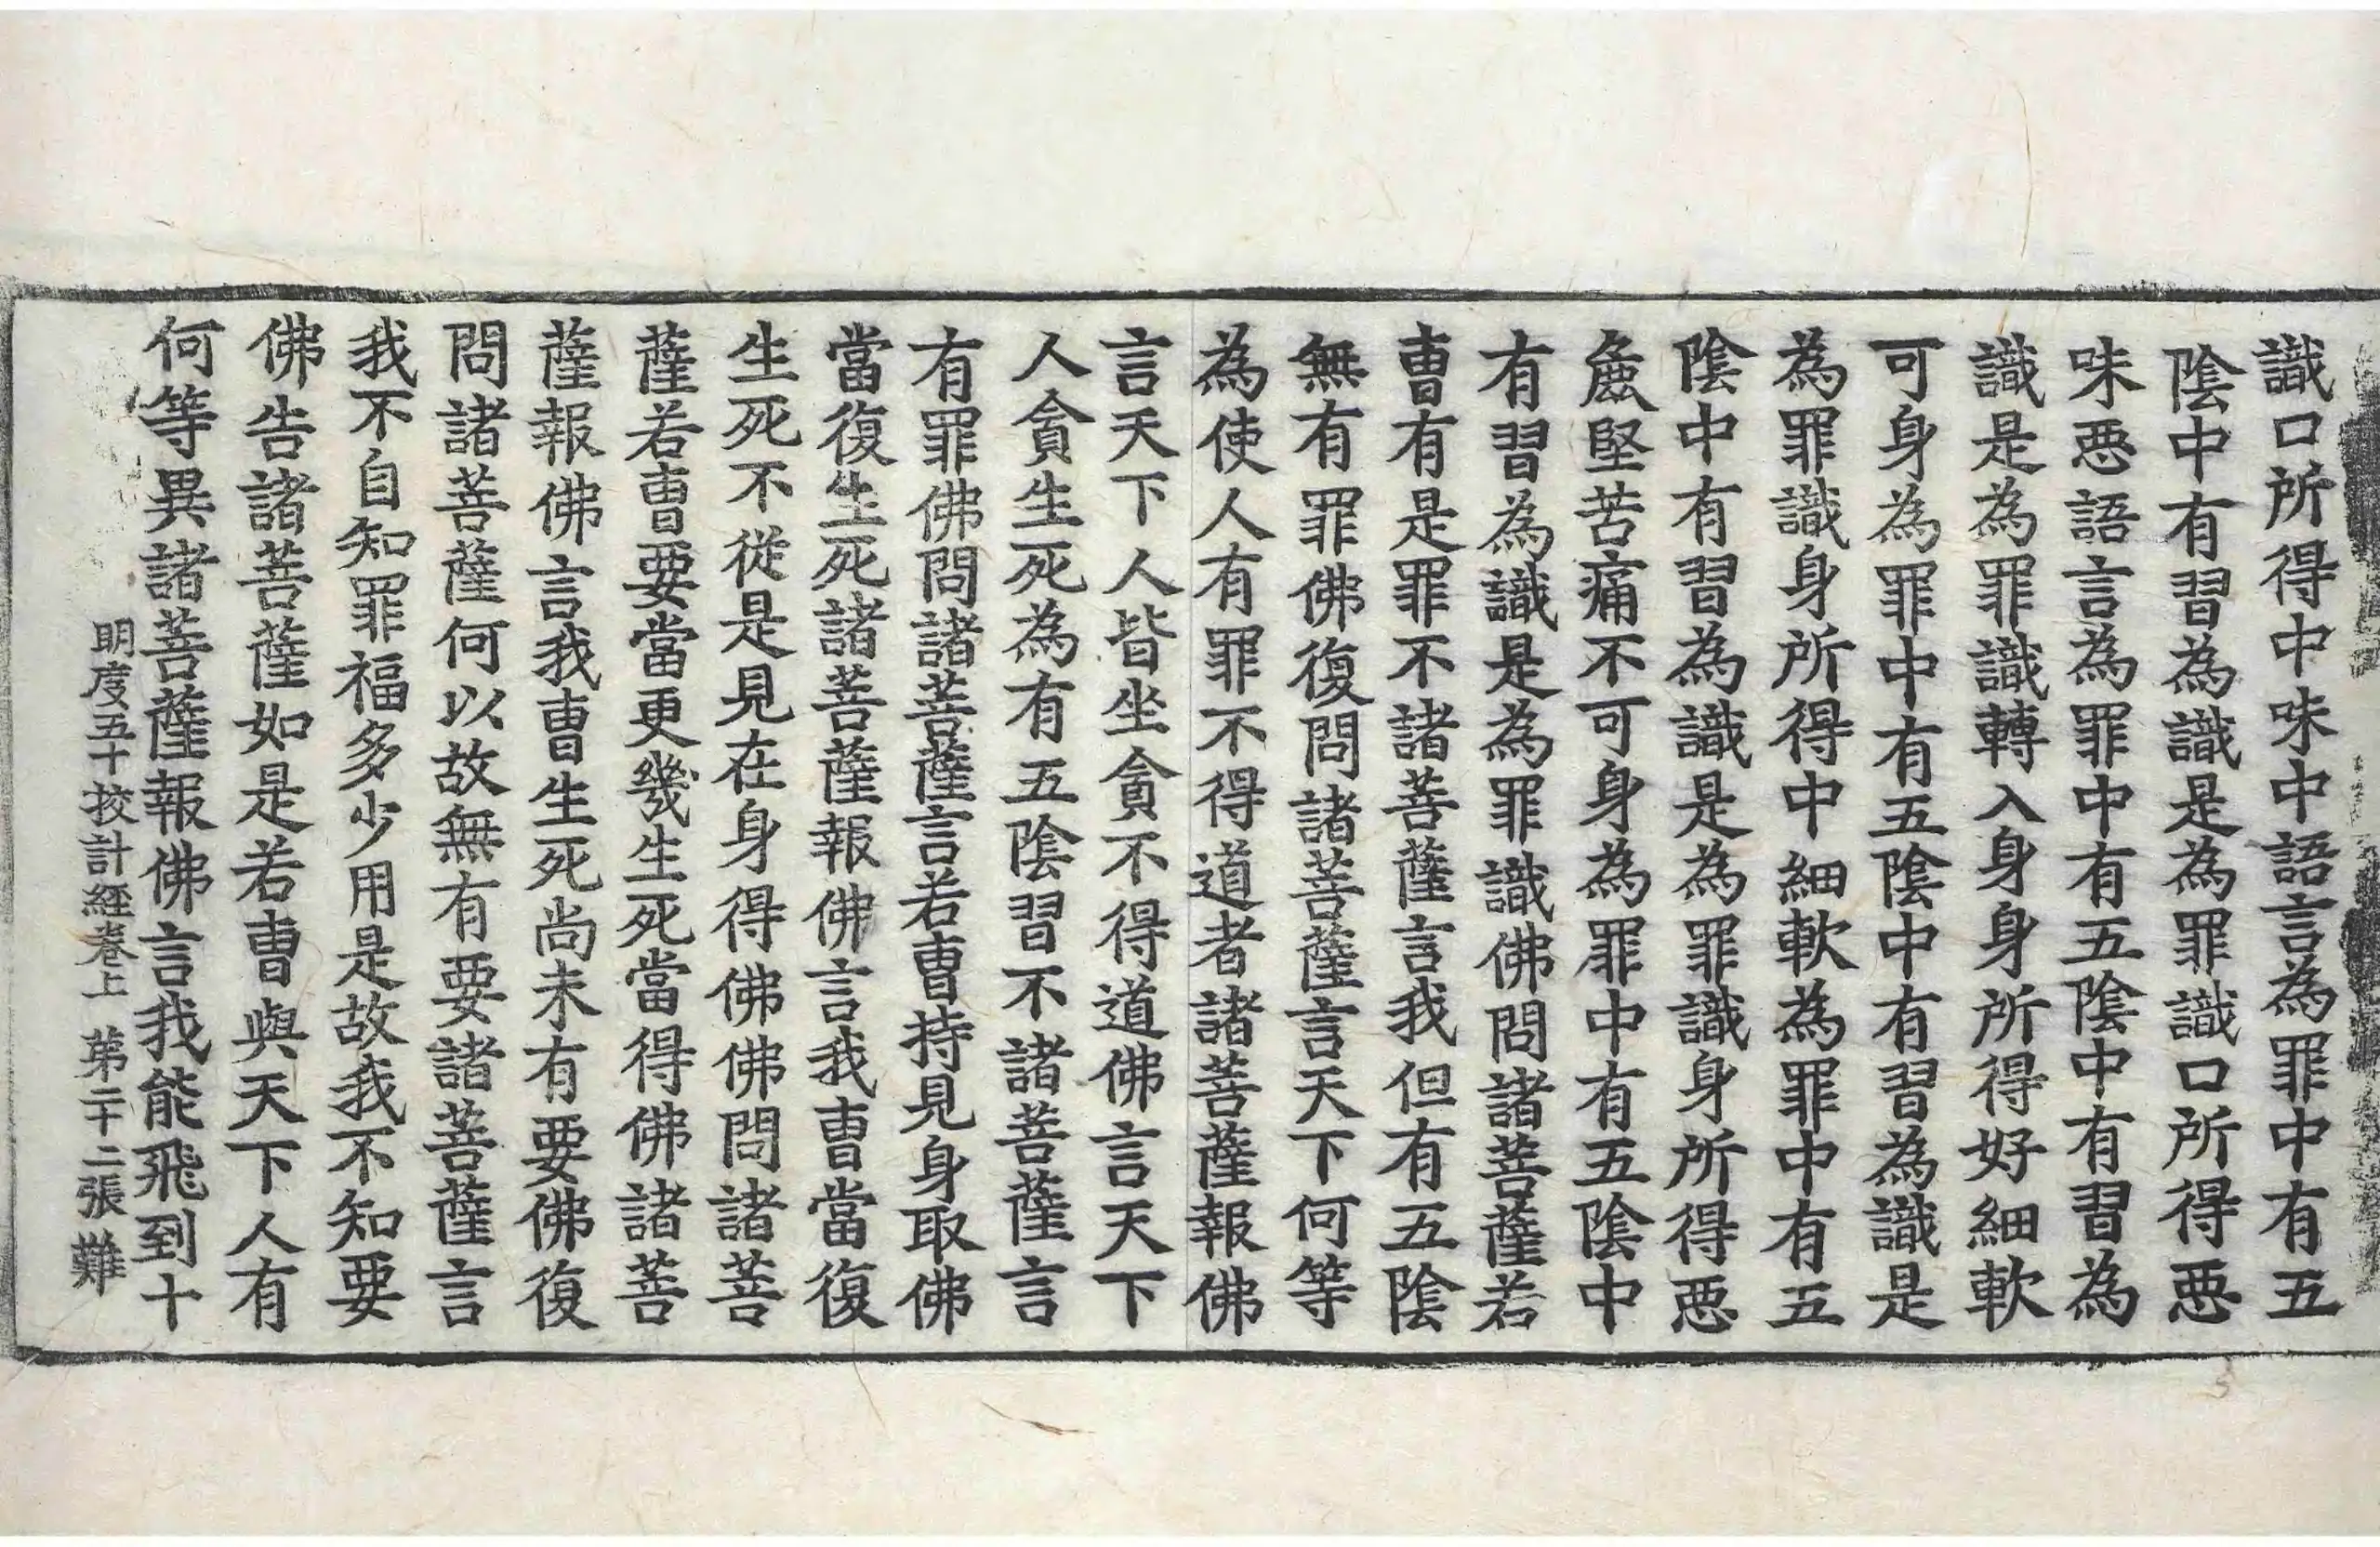 識口所得中味中語言為罪中有五
陰中有習為識是為罪識口所得惡
味惡語言為罪中有五陰中有習為
識是為罪識轉入身身所得好細軟
可身為罪中有五陰中有習為識是
為罪識身所得中細軟為罪中有五
陰中有習為識是為罪識身所得惡
麁堅苦痛不可身為罪中有五陰中
有習為識是為罪識佛問諸菩薩若
曹有是罪不諸菩薩言我但有五陰
無有罪佛復問諸菩薩言天下何等
為使人有罪不得道者諸菩薩報佛
言天下人皆坐貪不得道佛言天下
人貪生死為有五陰習不諸菩薩言
有罪佛問諸菩薩言若曹持見身取佛
當復生死諸菩薩報佛言我曹當復
生死不從是見在身得佛佛問諸菩
薩若曹要當更幾生死當得佛諸菩
薩報佛言我曹生死尚未有要佛復
問諸菩薩何以故無有要諸菩薩言
我不自知罪福多少用是故我不知要
佛告諸菩薩如是若曹與天下人有
何等異諸菩薩報佛言我能飛到十
明度五十挍計經卷上 第二十二張 難